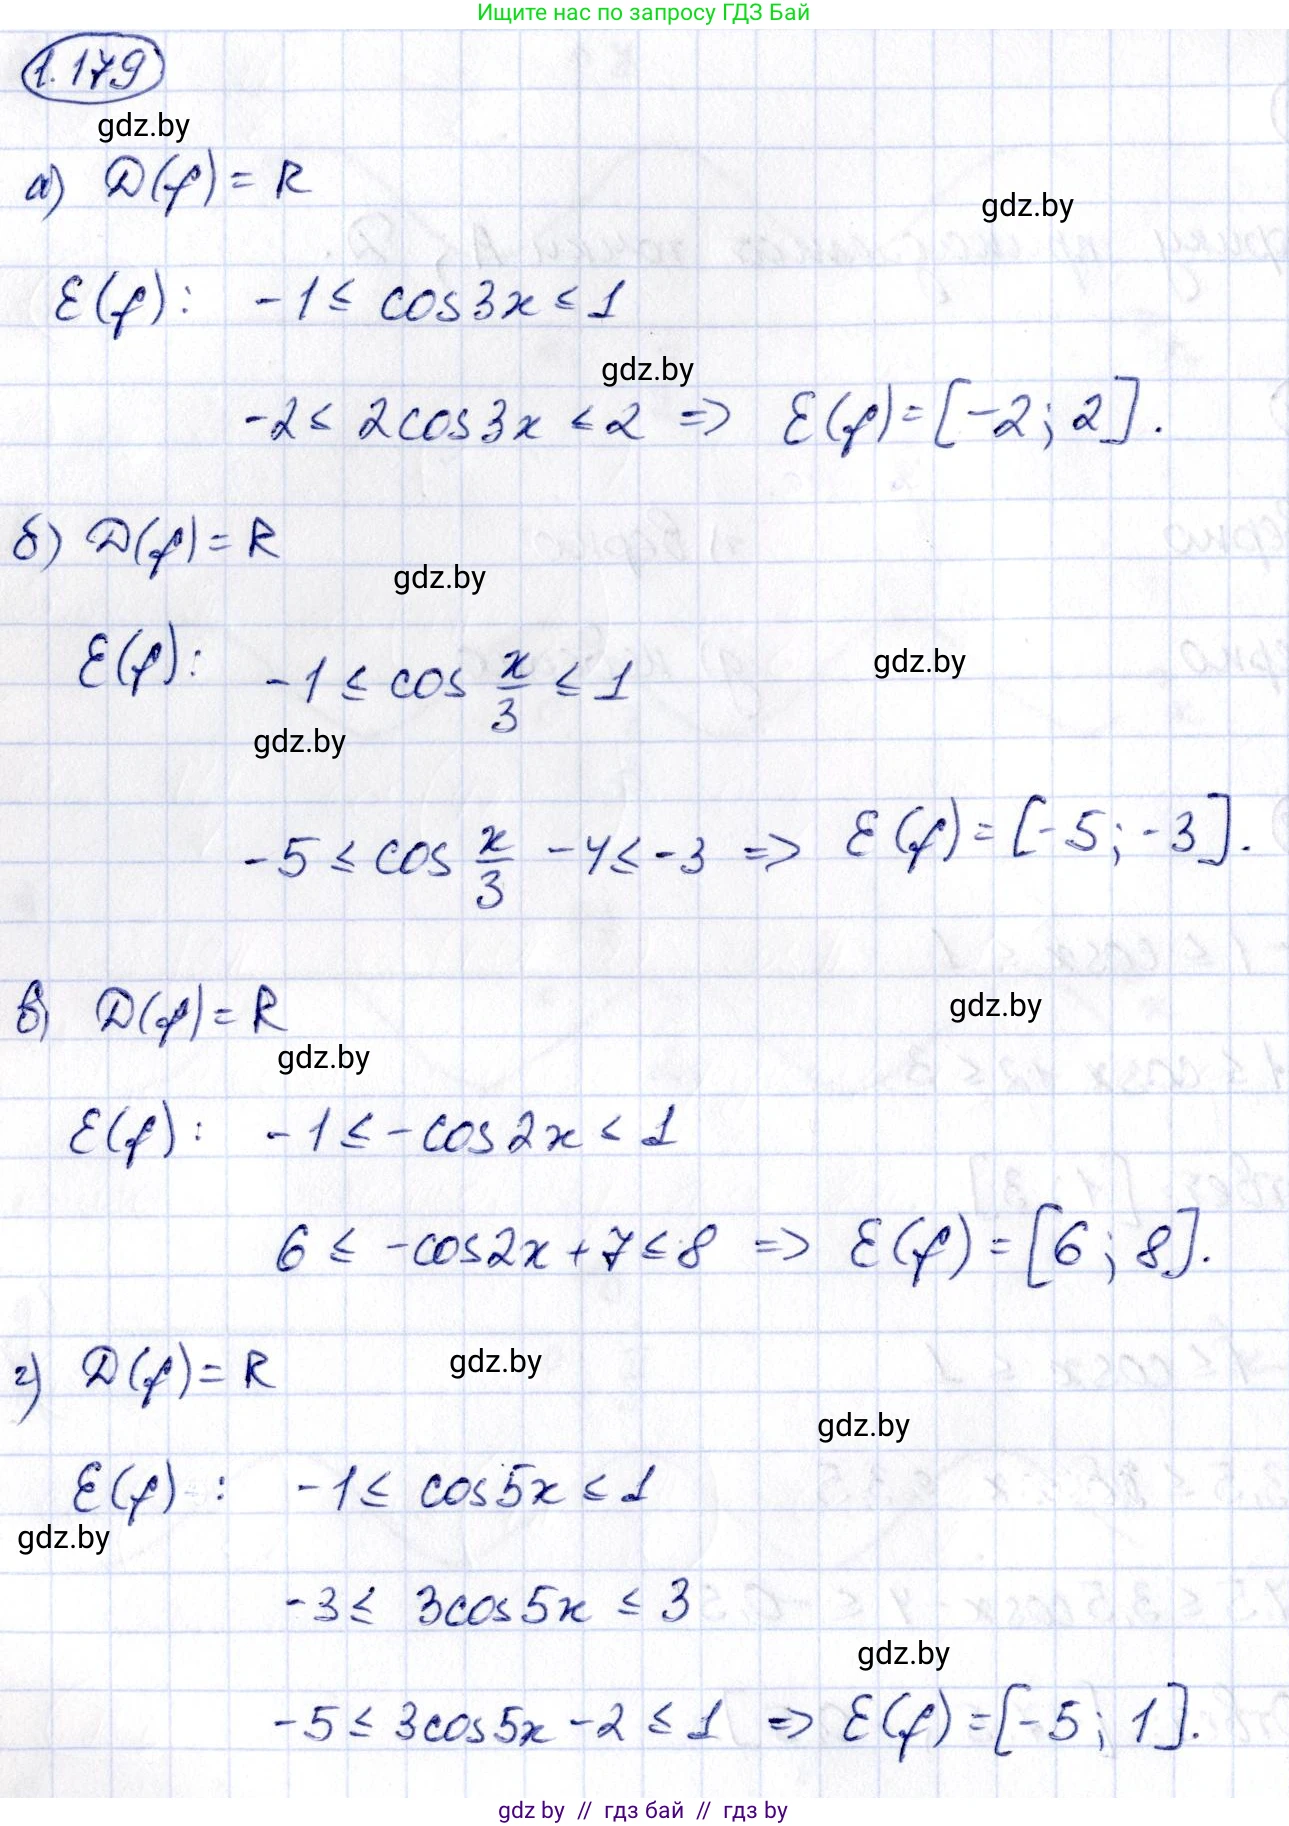 Ищите нас по запросу ГДЗ Бай
1.179
gdz.by
а) D(f) = R
gdz.by
E(f): -1 ≤ cos3x ≤ 1
gdz.by
-2 ≤ 2cos3x ≤ 2 => E(f) = [-2; 2].
б) D(f) = R
gdz.by
E(f): -1 ≤ cos x/3 ≤ 1
gdz.by
gdz.by
-5 ≤ cos x/3 - 4 ≤ -3 => E(f) = [-5; -3].
в) D(f) = R
gdz.by
gdz.by
E(f): -1 ≤ -cos2x ≤ 1
6 ≤ -cos2x + 7 ≤ 8 => E(f) = [6; 8].
г) D(f) = R
gdz.by
gdz.by
E(f): -1 ≤ cos5x ≤ 1
gdz.by
-3 ≤ 3cos5x ≤ 3
gdz.by
-5 ≤ 3cos5x - 2 ≤ 1 => E(f) = [-5; 1].
gdz by // гдз бай // гдз by